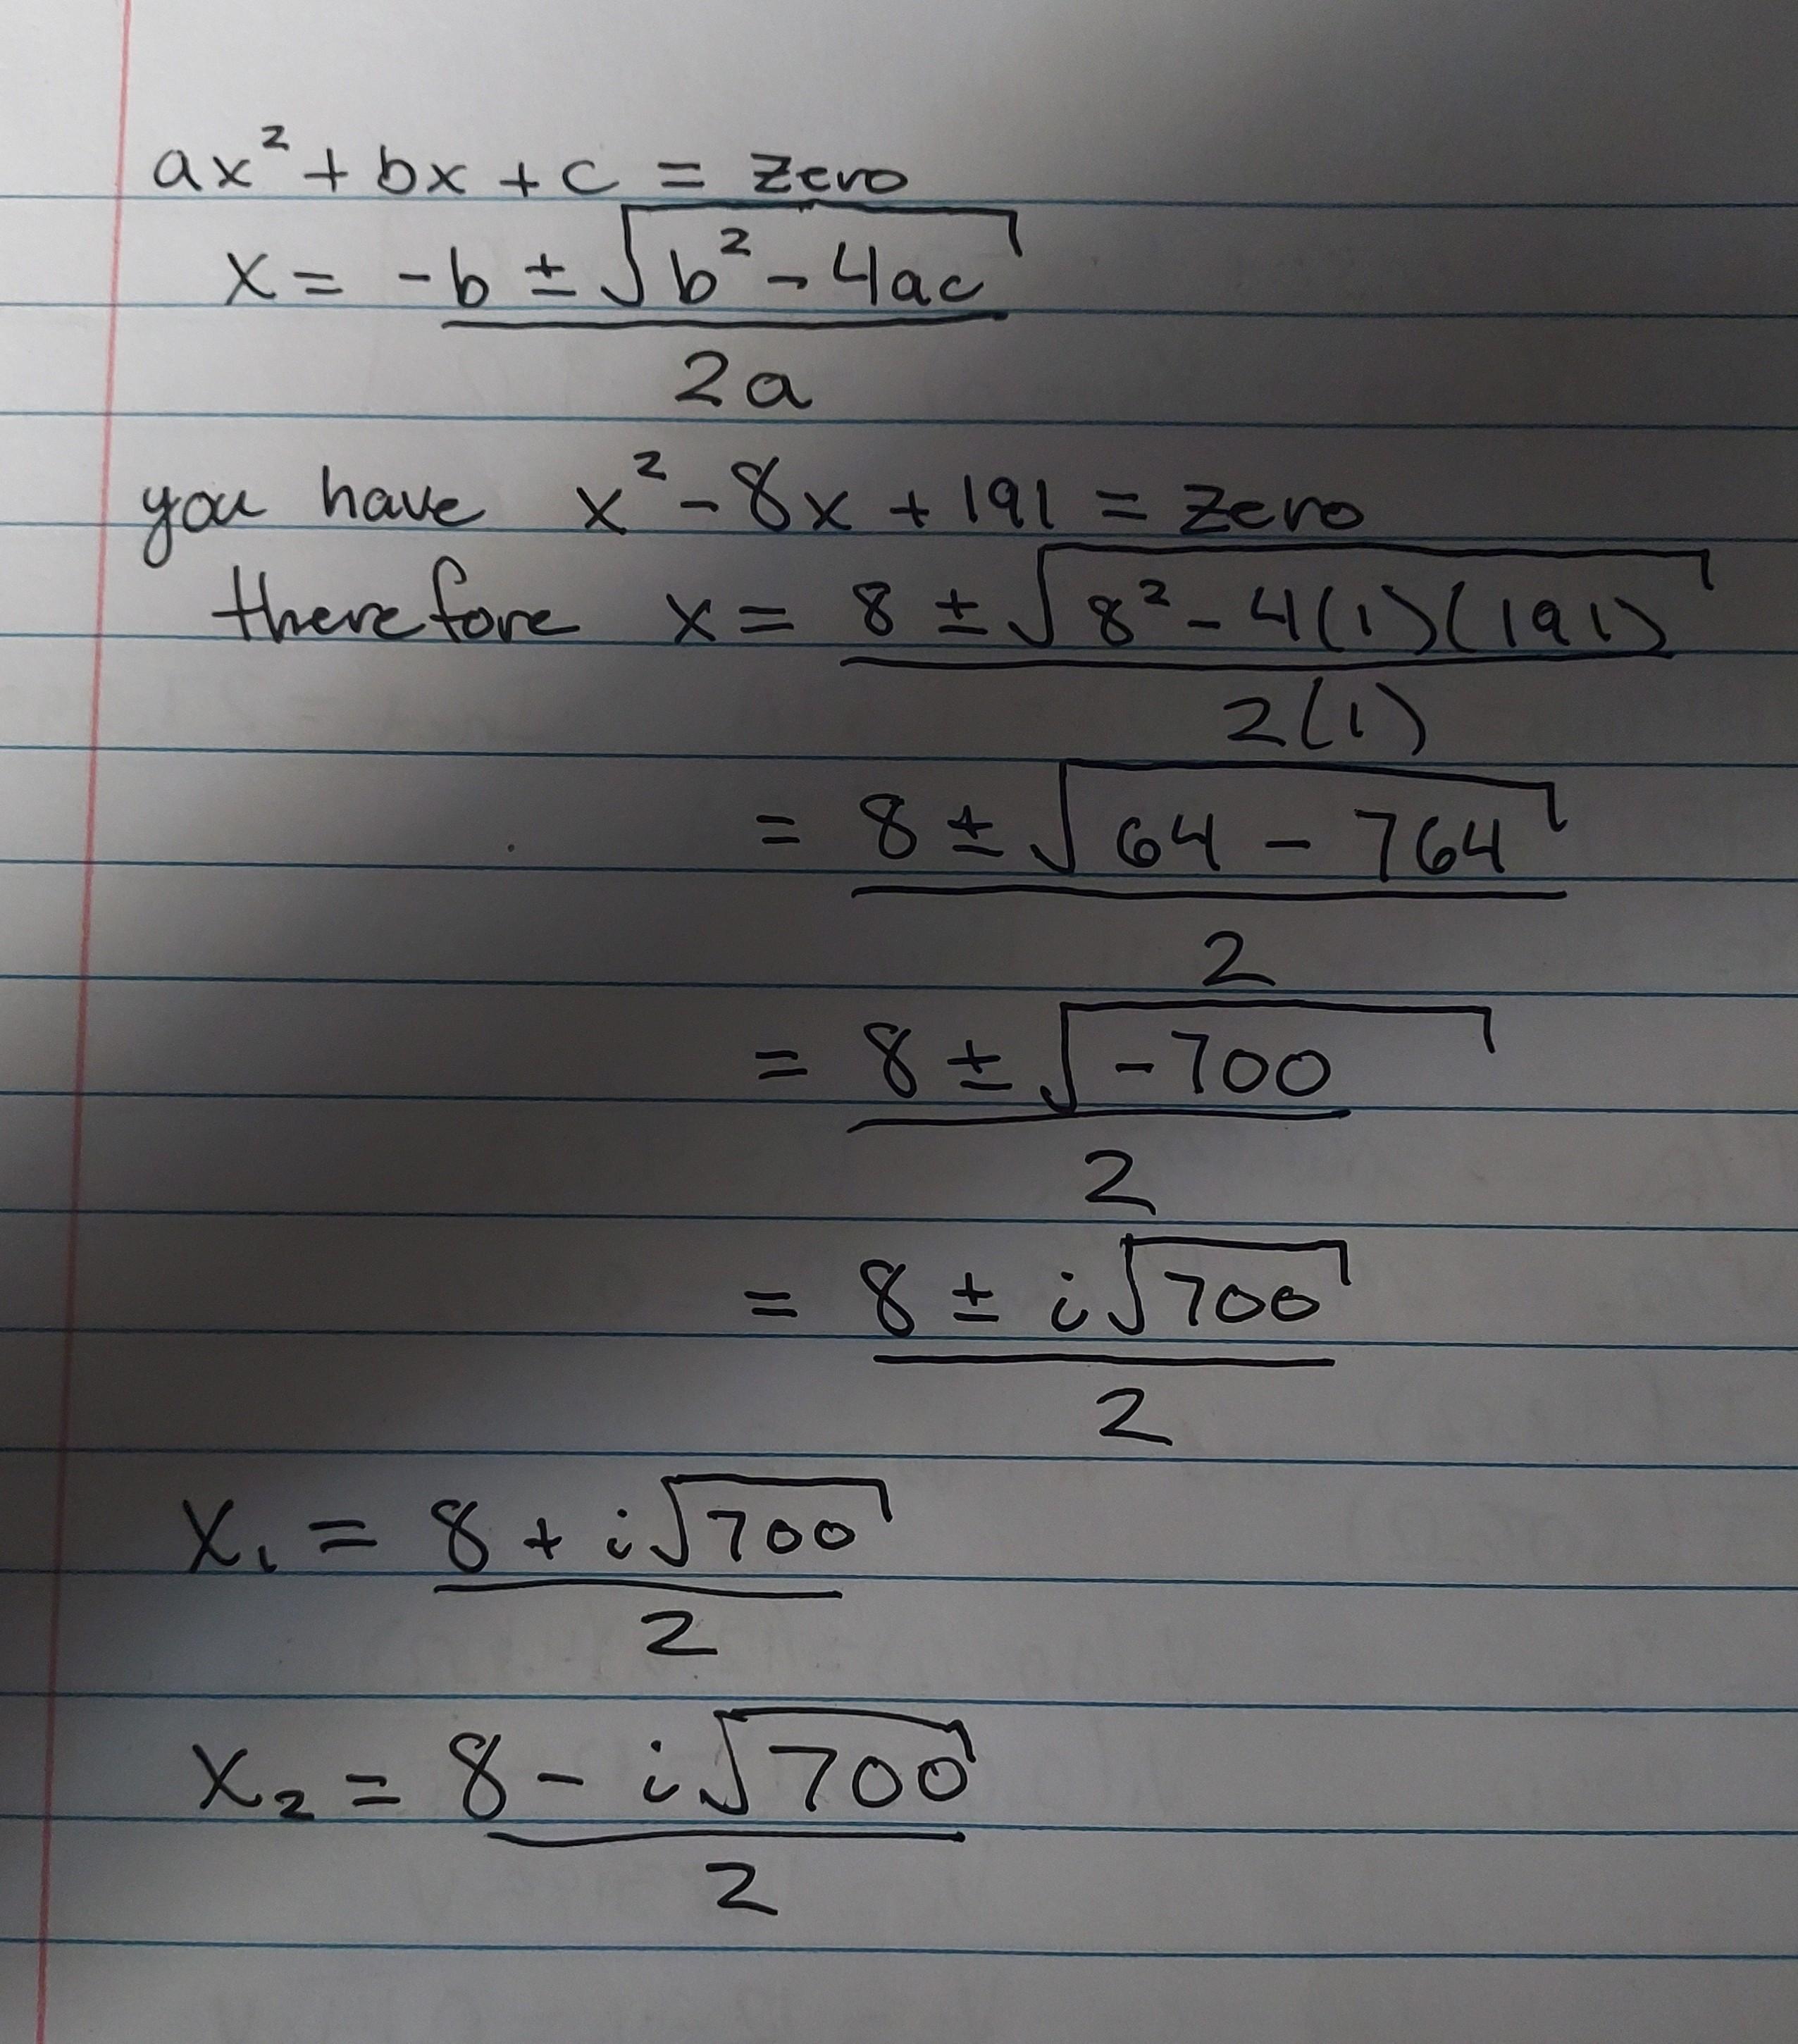 ax² + bx + c = zero
x = -b ± √b² - 4ac
2a
you have x² - 8x + 191 = zero
therefore x = 8 ± √8² - 4(1)(191)
2(1)
= 8 ± √64 - 764
2
= 8 ± √-700
2
= 8 ± i√700
2
x₁ = 8 + i√700
2
x₂ = 8 - i√700
2